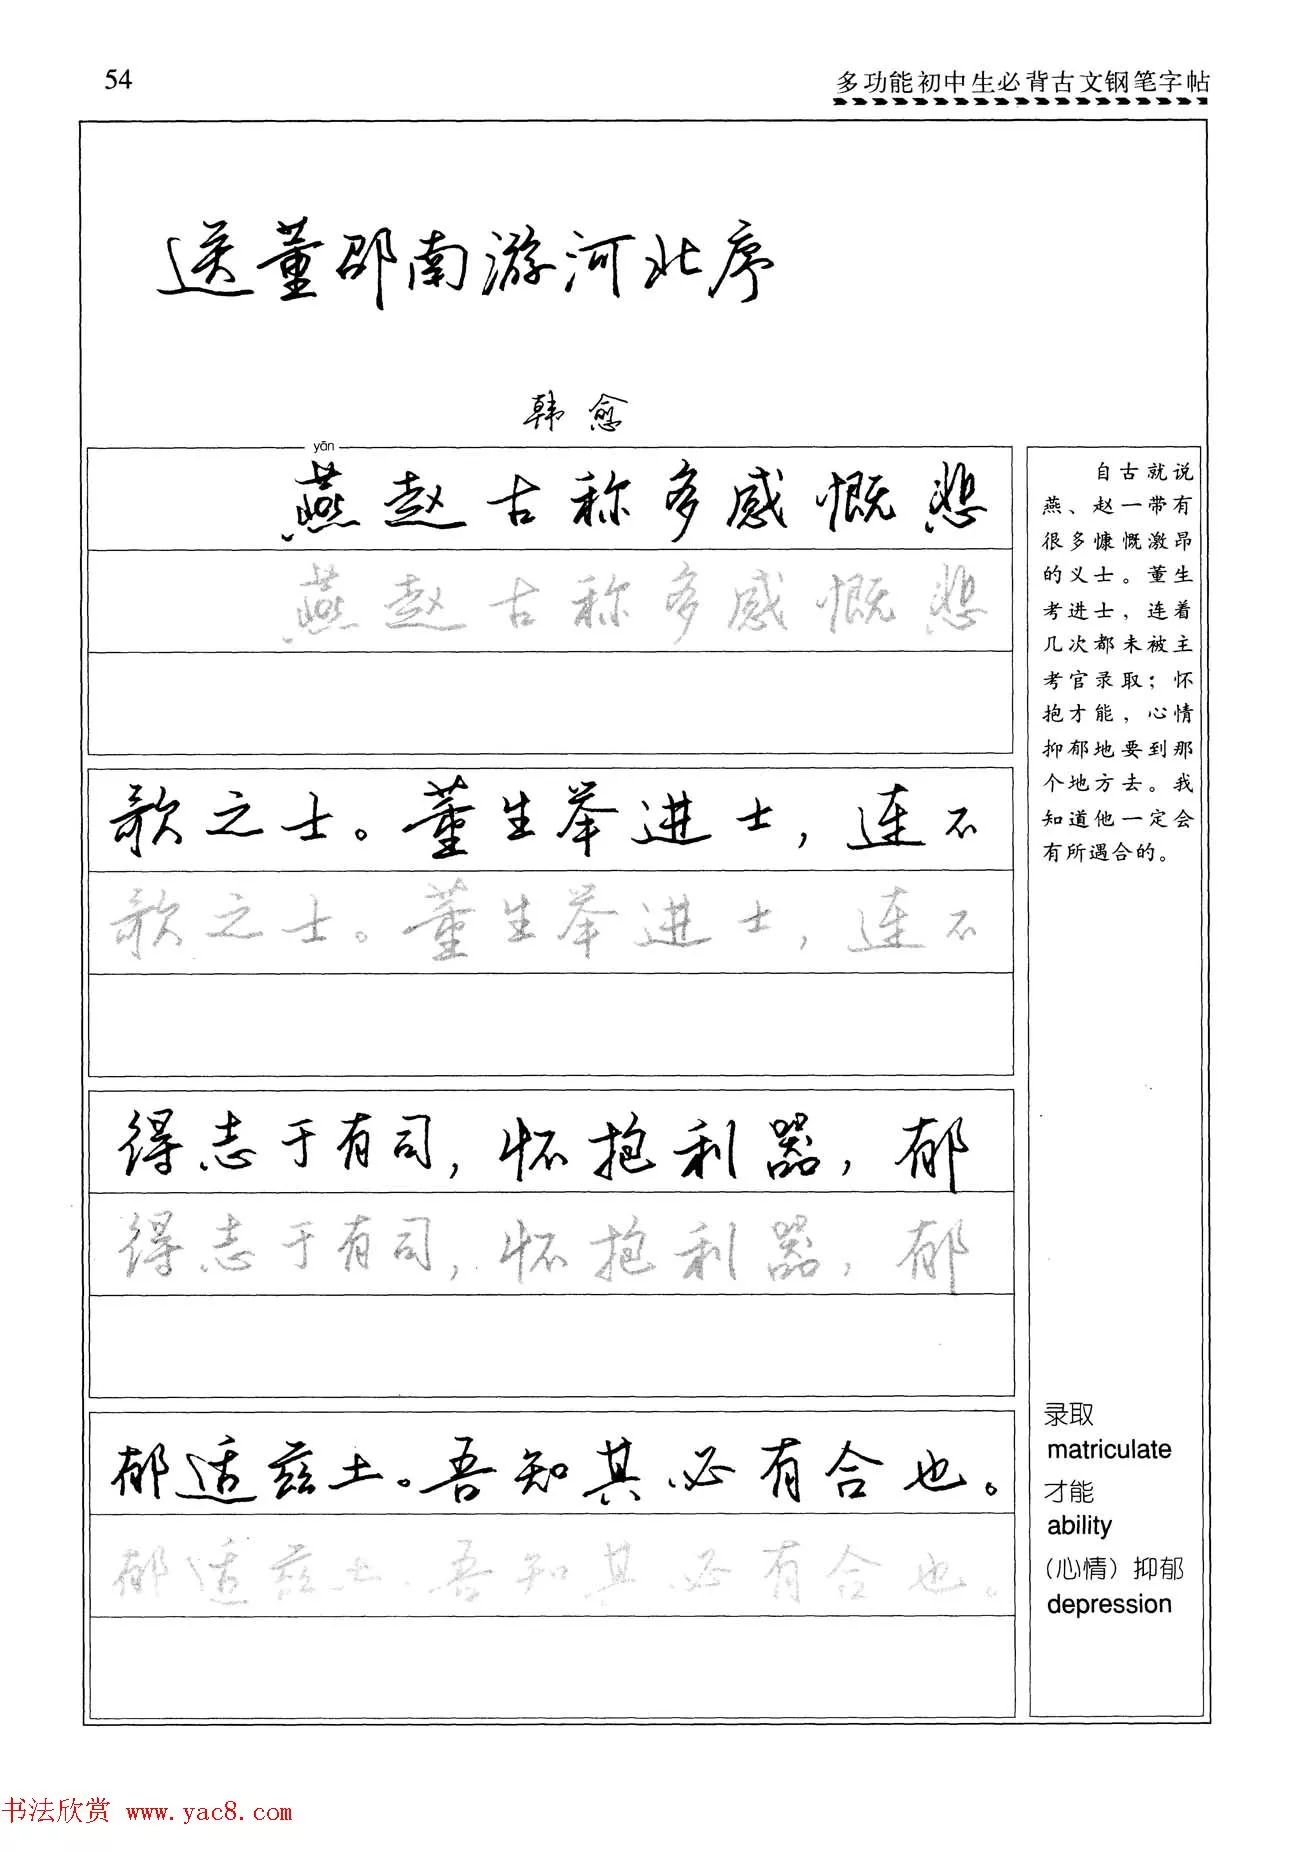 54
多功能初中生必背古文钢笔字帖
送董邵南游河北序
韩愈
yān
燕赵古称多感慨悲
燕赵古称多感慨悲
歌之士。董生举进士，连不
歌之士。董生举进士，连不
得志于有司，怀抱利器，郁
得志于有司，怀抱利器，郁
郁适兹土。吾知其必有合也。
郁适兹土。吾知其必有合也。
自古就说
燕、赵一带有
很多慷慨激昂
的义士。董生
考进士，连着
几次都未被主
考官录取；怀
抱才能，心情
抑郁地要到那
个地方去。我
知道他一定会
有所遇合的。
录取
matriculate
才能
ability
（心情）抑郁
depression
书法欣赏 www.yac8.com